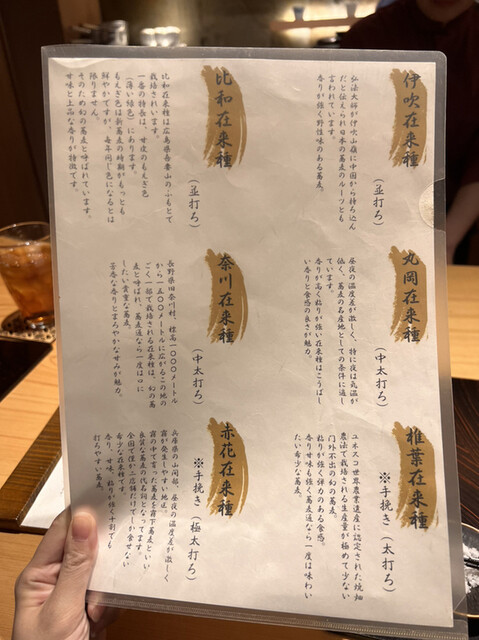 伊吹在来種
(並打ち)
弘法大師が伊吹山嶺に中国から持ち込ん
だと伝えられ日本の蕎麦のルーツとも
言われています。
香りが強く野性味のある蕎麦。
丸岡在来種
(中太打ち)
昼夜の温度差が激しく、特に夜は気温が
低く、蕎麦の名産地としての条件に適し
ています。
香りが高く粘りが強い在来種はこうばし
い香りと食感の良さが魅力。
椎葉在来種
※手挽き(太打ち)
ユネスコ世界農業遺産に認定された焼畑
農法で栽培される生産量が極めて少ない
門外不出の幻の蕎麦。
粘りが強く弾力のある食感。
香りも味も強く蕎麦通なら一度は味わい
たい希少な蕎麦。
比和在来種
(並打ち)
比和在来種は広島県吾妻山のふもとで
栽培されています。
一番の特長は、甘皮のもえぎ色
(薄い緑色)にあります。
もえぎ色は新蕎麦の時期がもっとも
鮮やかですが、毎年同じ色になるとは
限りません。
そのため幻の蕎麦と呼ばれています。
甘味と上品な香りが特徴です。
奈川在来種
(中太打ち)
長野県旧奈川村、標高一〇〇〇メートル
から一五〇〇メートルに広がるこの地の
ごく一部で栽培される在来種は、幻の蕎
麦と呼ばれ、蕎麦通なら一度は口に
したい貴重な蕎麦。
芳香な香りとまろやかな甘みが魅力。
赤花在来種
※手挽き(極太打ち)
兵庫県の山間部、昼夜の温度差が激しく
霧が発生しやすい地区。
霧の中で育った蕎麦を霧下蕎麦といい
良質な蕎麦の代名詞となってます。
全国で僅か二店舗だけでしか食せない
希少な在来種です。
香り、甘味、粘りが強く十割でも
打ちやすい蕎麦。